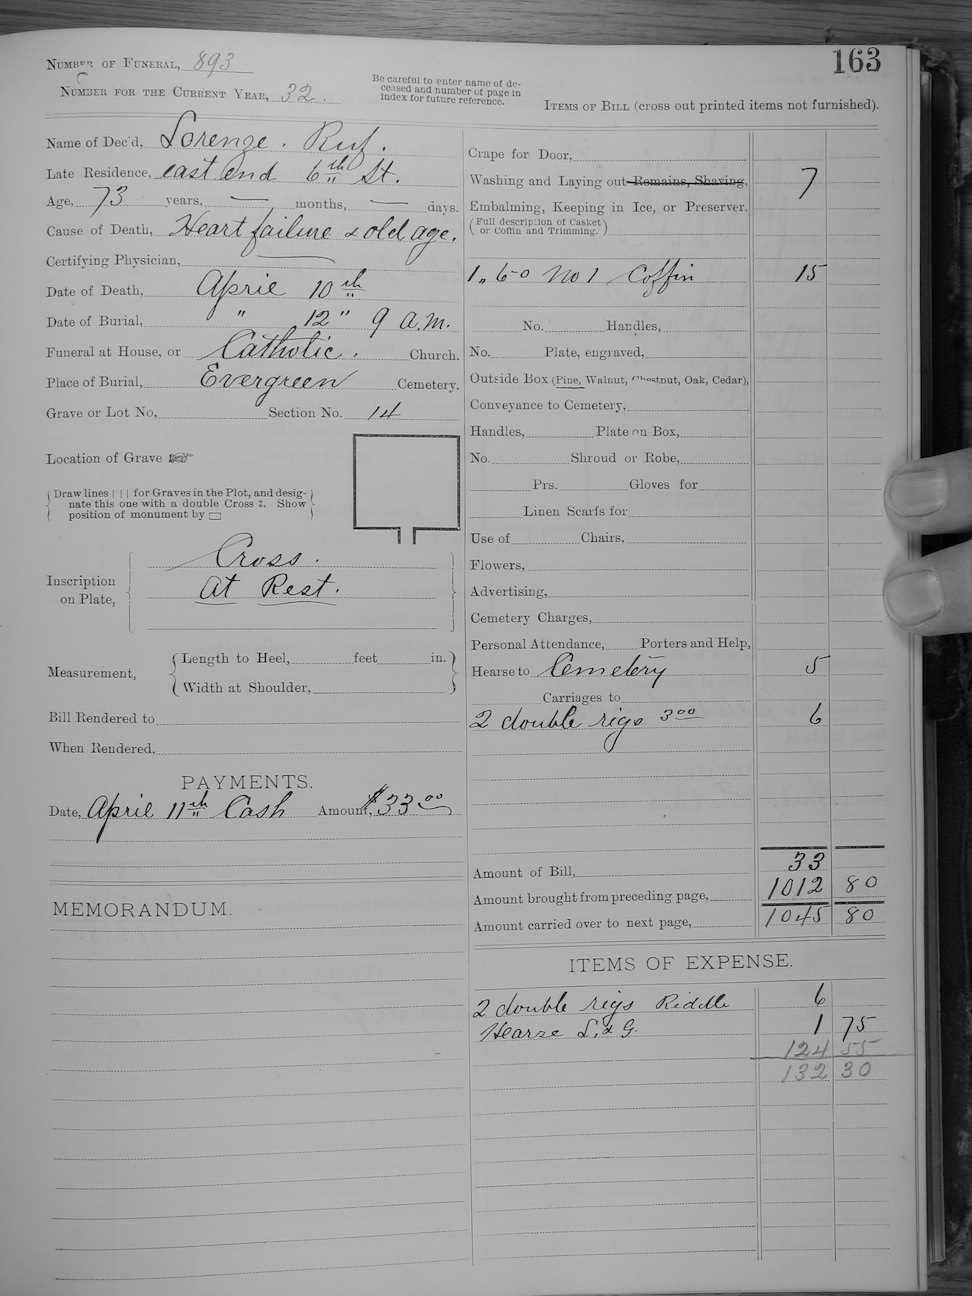 163
Number of Funeral, 893
Number for the Current Year, 32
Be careful to enter name of de-
ceased and number of page in
index for future reference.
Items of Bill (cross out printed items not furnished).
Name of Dec'd, Lorenze. Ruf.
Late Residence, east end 6th St.
Age, 73 years, — months, — days.
Cause of Death, Heart failure & old age.
Certifying Physician,
Date of Death, Aprie 10th
Date of Burial, " 12" 9 a.m.
Funeral at House, or Catholic. Church.
Place of Burial, Evergreen Cemetery.
Grave or Lot No, Section No. 14
Location of Grave ☞
Draw lines | | | for Graves in the Plot, and desig-
nate this one with a double Cross ‡. Show
position of monument by ▭
Inscription
on Plate,
Cross.
At Rest.
Measurement,
Length to Heel, feet in.
Width at Shoulder,
Bill Rendered to
When Rendered,
PAYMENTS.
Date, Aprie 11th Cash Amount, $33 00
MEMORANDUM.
Crape for Door,
Washing and Laying out Remains, Shaving, 7
Embalming, Keeping in Ice, or Preserver.
(Full description of Casket
or Coffin and Trimming.)
1,, 6-0 No 1 Coffin 15
No. Handles,
No. Plate, engraved,
Outside Box (Pine, Walnut, Chestnut, Oak, Cedar),
Conveyance to Cemetery,
Handles, Plate on Box,
No. Shroud or Robe,
Prs. Gloves for
Linen Scarfs for
Use of Chairs,
Flowers,
Advertising,
Cemetery Charges,
Personal Attendance, Porters and Help,
Hearse to Cemetery 5
Carriages to
2 double rigs 3 00 6
Amount of Bill, 33
Amount brought from preceding page, 1012 80
Amount carried over to next page, 1045 80
ITEMS OF EXPENSE.
2 double rigs Riddle 6
Hearse L & G. 1 75
124 55
132 30